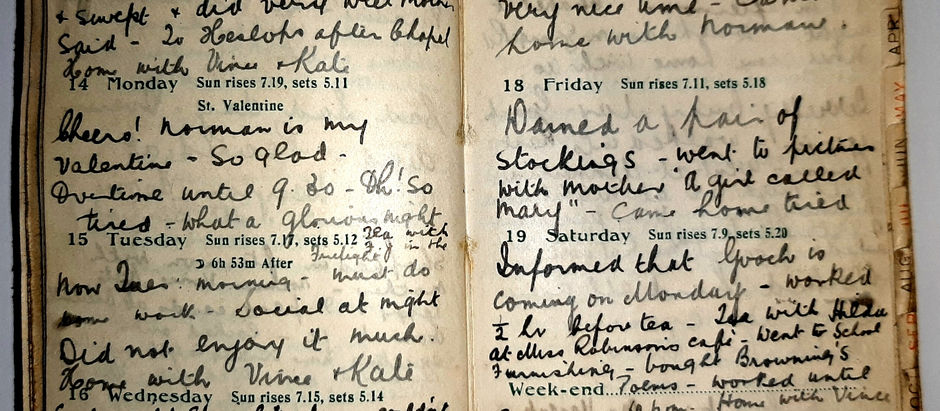 & swept & did very well Mother
Said - To Heslops after Chapel
Home with Vince & Kate
14 Monday Sun rises 7.19, sets 5.11
St. Valentine
Cheers! Norman is my
Valentine - So glad -
Overtime until 9.30 - Oh! So
tired - what a glorious night
15 Tuesday Sun rises 7.17, sets 5.12 Tea with
in the
Firelight
☽ 6h 53m After
Now Tues. morning - must do
some work - Social at night
Did not enjoy it much.
Home with Vince & Kate
16 Wednesday Sun rises 7.15, sets 5.14
Very nice time - Came
home with Norman.
18 Friday Sun rises 7.11, sets 5.18
Darned a pair of
stockings - went to pictures
with Mother "A girl called
Mary" - Came home tired
19 Saturday Sun rises 7.9, sets 5.20
Informed that Gooch is
coming on Monday - worked
½ hr before tea - Tea with Hilda
at Miss Robinson's café - went to School
Furnishing - bought Browning's
Week-end Poems - worked until
10 p.m. Home with Vince
APR
MAY
JUN
JUL
AUG
SEP
OC